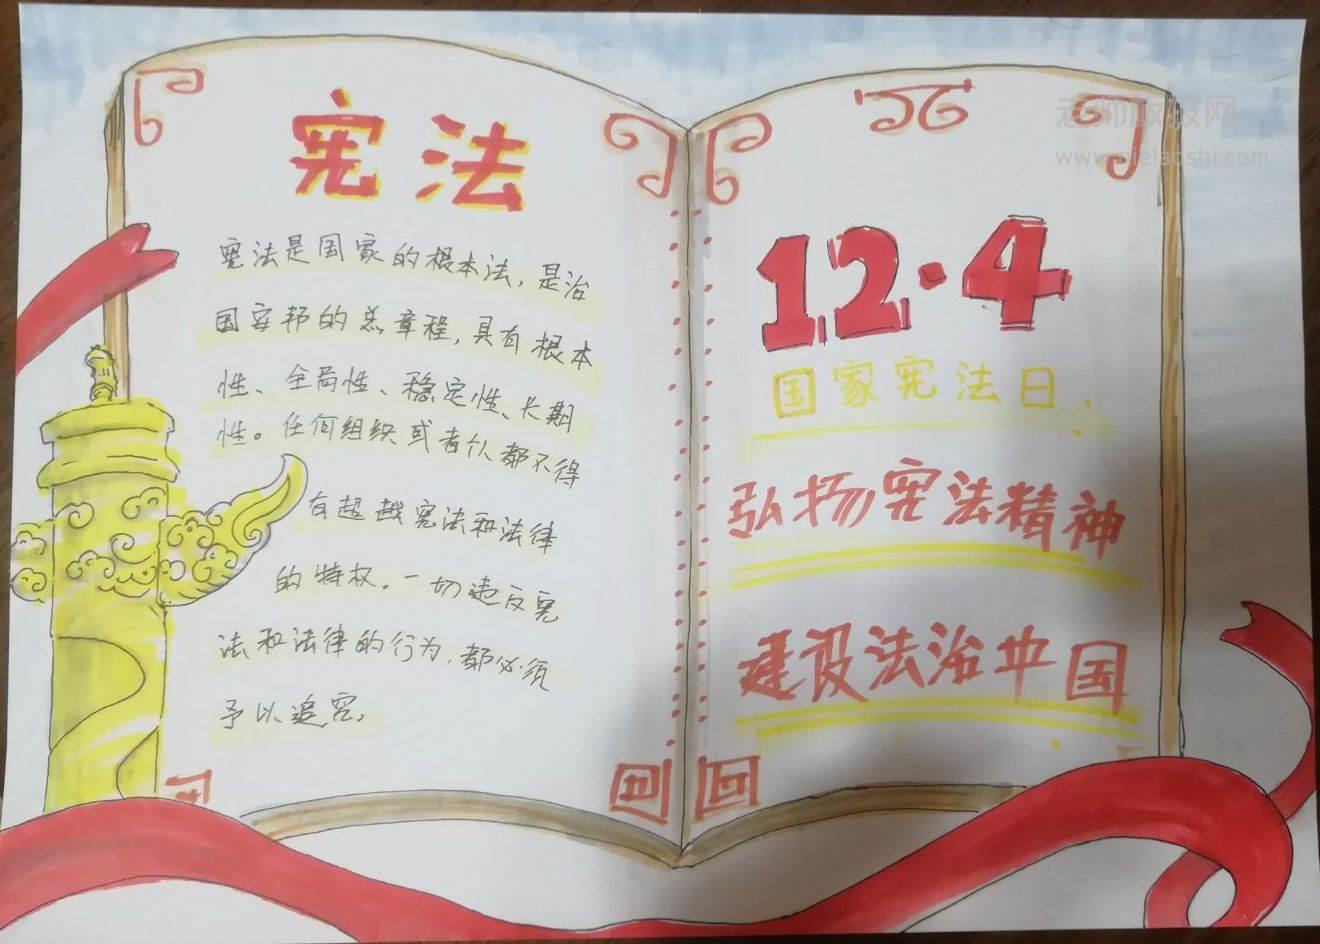 宪法
宪法是国家的根本法，是治
国安邦的总章程，具有根本
性、全局性、稳定性、长期
性。任何组织或者个人都不得
有超越宪法和法律
的特权。一切违反宪
法和法律的行为，都必须
予以追究。
12·4
国家宪法日.
弘扬宪法精神
建设法治中国
老师板报网